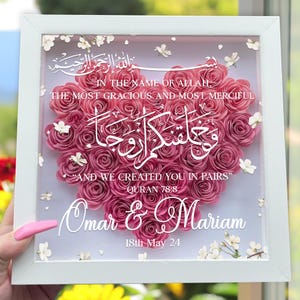 بسم الله الرحمن الرحيم
IN THE NAME OF ALLAH
THE MOST GRACIOUS AND MOST MERCIFUL
وخلقنكم أزوجا
"AND WE CREATED YOU IN PAIRS"
QURAN 78:8
Omar & Mariam
18th May 24